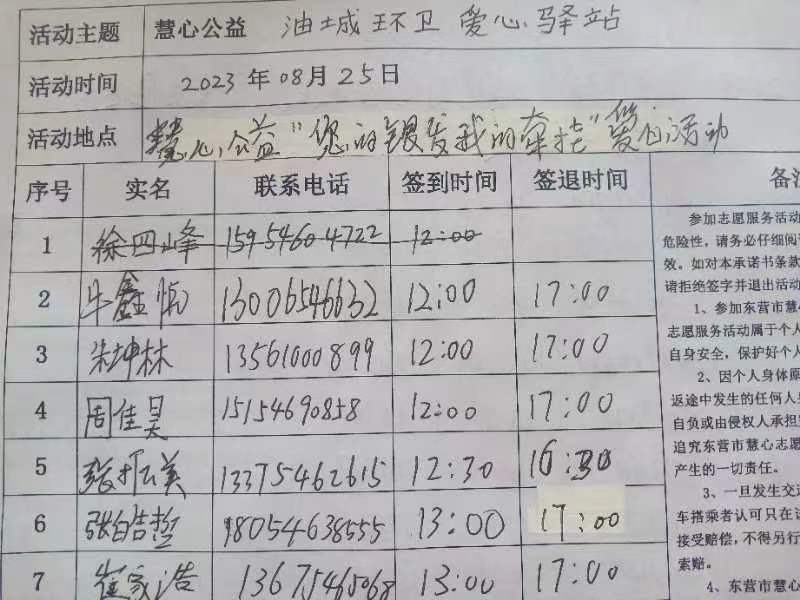 活动主题 慧心公益 油城环卫 爱心驿站
活动时间 2023年08月25日
活动地点 慧心公益"您的银发我的牵挂"爱的活动
序号 实名 联系电话 签到时间 签退时间 备注
1 徐四峰 159 5460 4722 12:00
2 牛鑫 13006546632 12:00 17:00
3 朱坤林 13561000899 12:00 17:00
4 周佳昊 15154690858 12:00 17:00
5 张振美 13375462615 12:30 16:30
6 18054638555 13:00 17:00
7 崔家浩 13675465068 13:00 17:00
参加志愿服务活动
危险性,请务必仔细阅
效。如对本承诺书条款
请拒绝签字并退出活动
1、参加东营市慧心
志愿服务活动属于个人
自身安全,保护好个人
2、因个人身体原
返途中发生的任何人
自负或由侵权人承担
追究东营市慧心志愿
产生的一切责任。
3、一旦发生交
车搭乘者认可只在
接受赔偿,不得另行
索赔。
4、东营市慧心